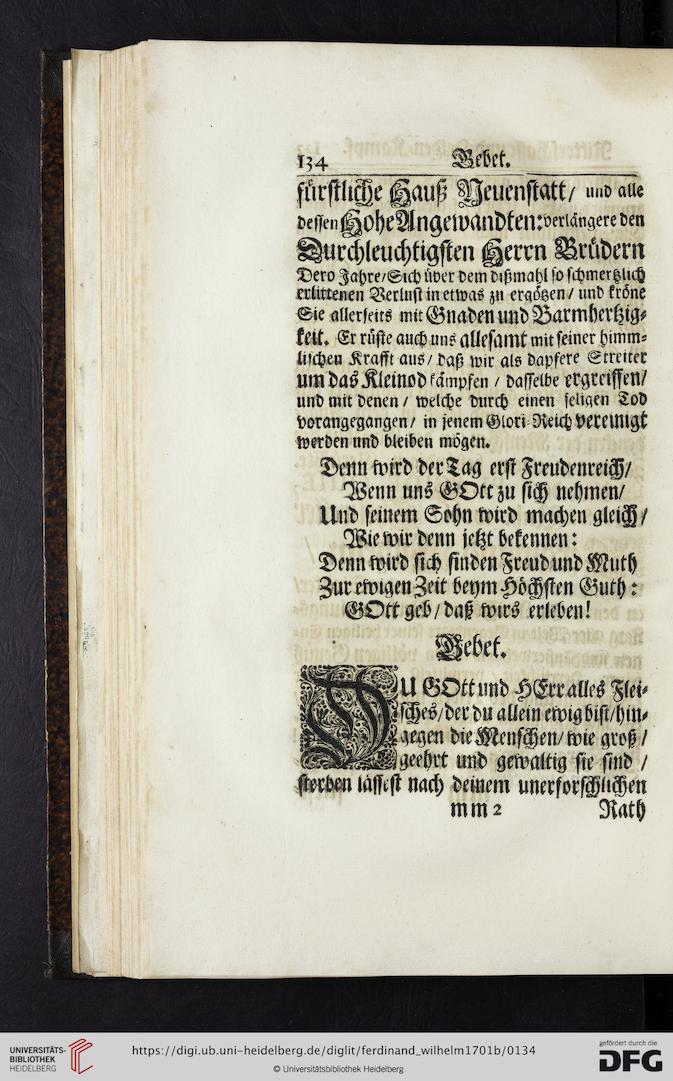 134 Gebet.
fürstliche Hauß Neuenstatt/ und alle
dessen Hohe Angewandten: verlängere den
Durchleuchtigsten Herrn Brüdern
Dero Jahre/ Sich über dem dißmahl so schmertzlich
erlittenen Verlust in etwas zu ergötzen/ und kröne
Sie allerseits mit Gnaden und Barmhertzig-
keit. Er rüste auch uns allesamt mit seiner himm-
lischen Krafft aus/ daß wir als dapfere Streiter
um das Kleinod kämpfen / dasselbe ergreiffen/
und mit denen / welche durch einen seligen Tod
vorangegangen/ in jenem Glori-Reich vereinigt
werden und bleiben mögen.
Denn wird der Tag erst Freudenreich/
Wenn uns GOtt zu sich nehmen/
Und seinem Sohn wird machen gleich/
Wie wir denn jetzt bekennen:
Denn wird sich finden Freud und Muth
Zur ewigen Zeit beym Höchsten Guth:
GOtt geb/ daß wirs erleben!
Gebet.
DU GOtt und HErr alles Flei-
sches/ der du allein ewig bist/ hin-
gegen die Menschen/ wie groß/
geehrt und gewaltig sie sind /
sterben lässest nach deinem unerforschlichen
mm 2 Rath
UNIVERSITÄTS-
BIBLIOTHEK
HEIDELBERG
https://digi.ub.uni-heidelberg.de/diglit/ferdinand_wilhelm1701b/0134
© Universitätsbibliothek Heidelberg
gefördert durch die
DFG